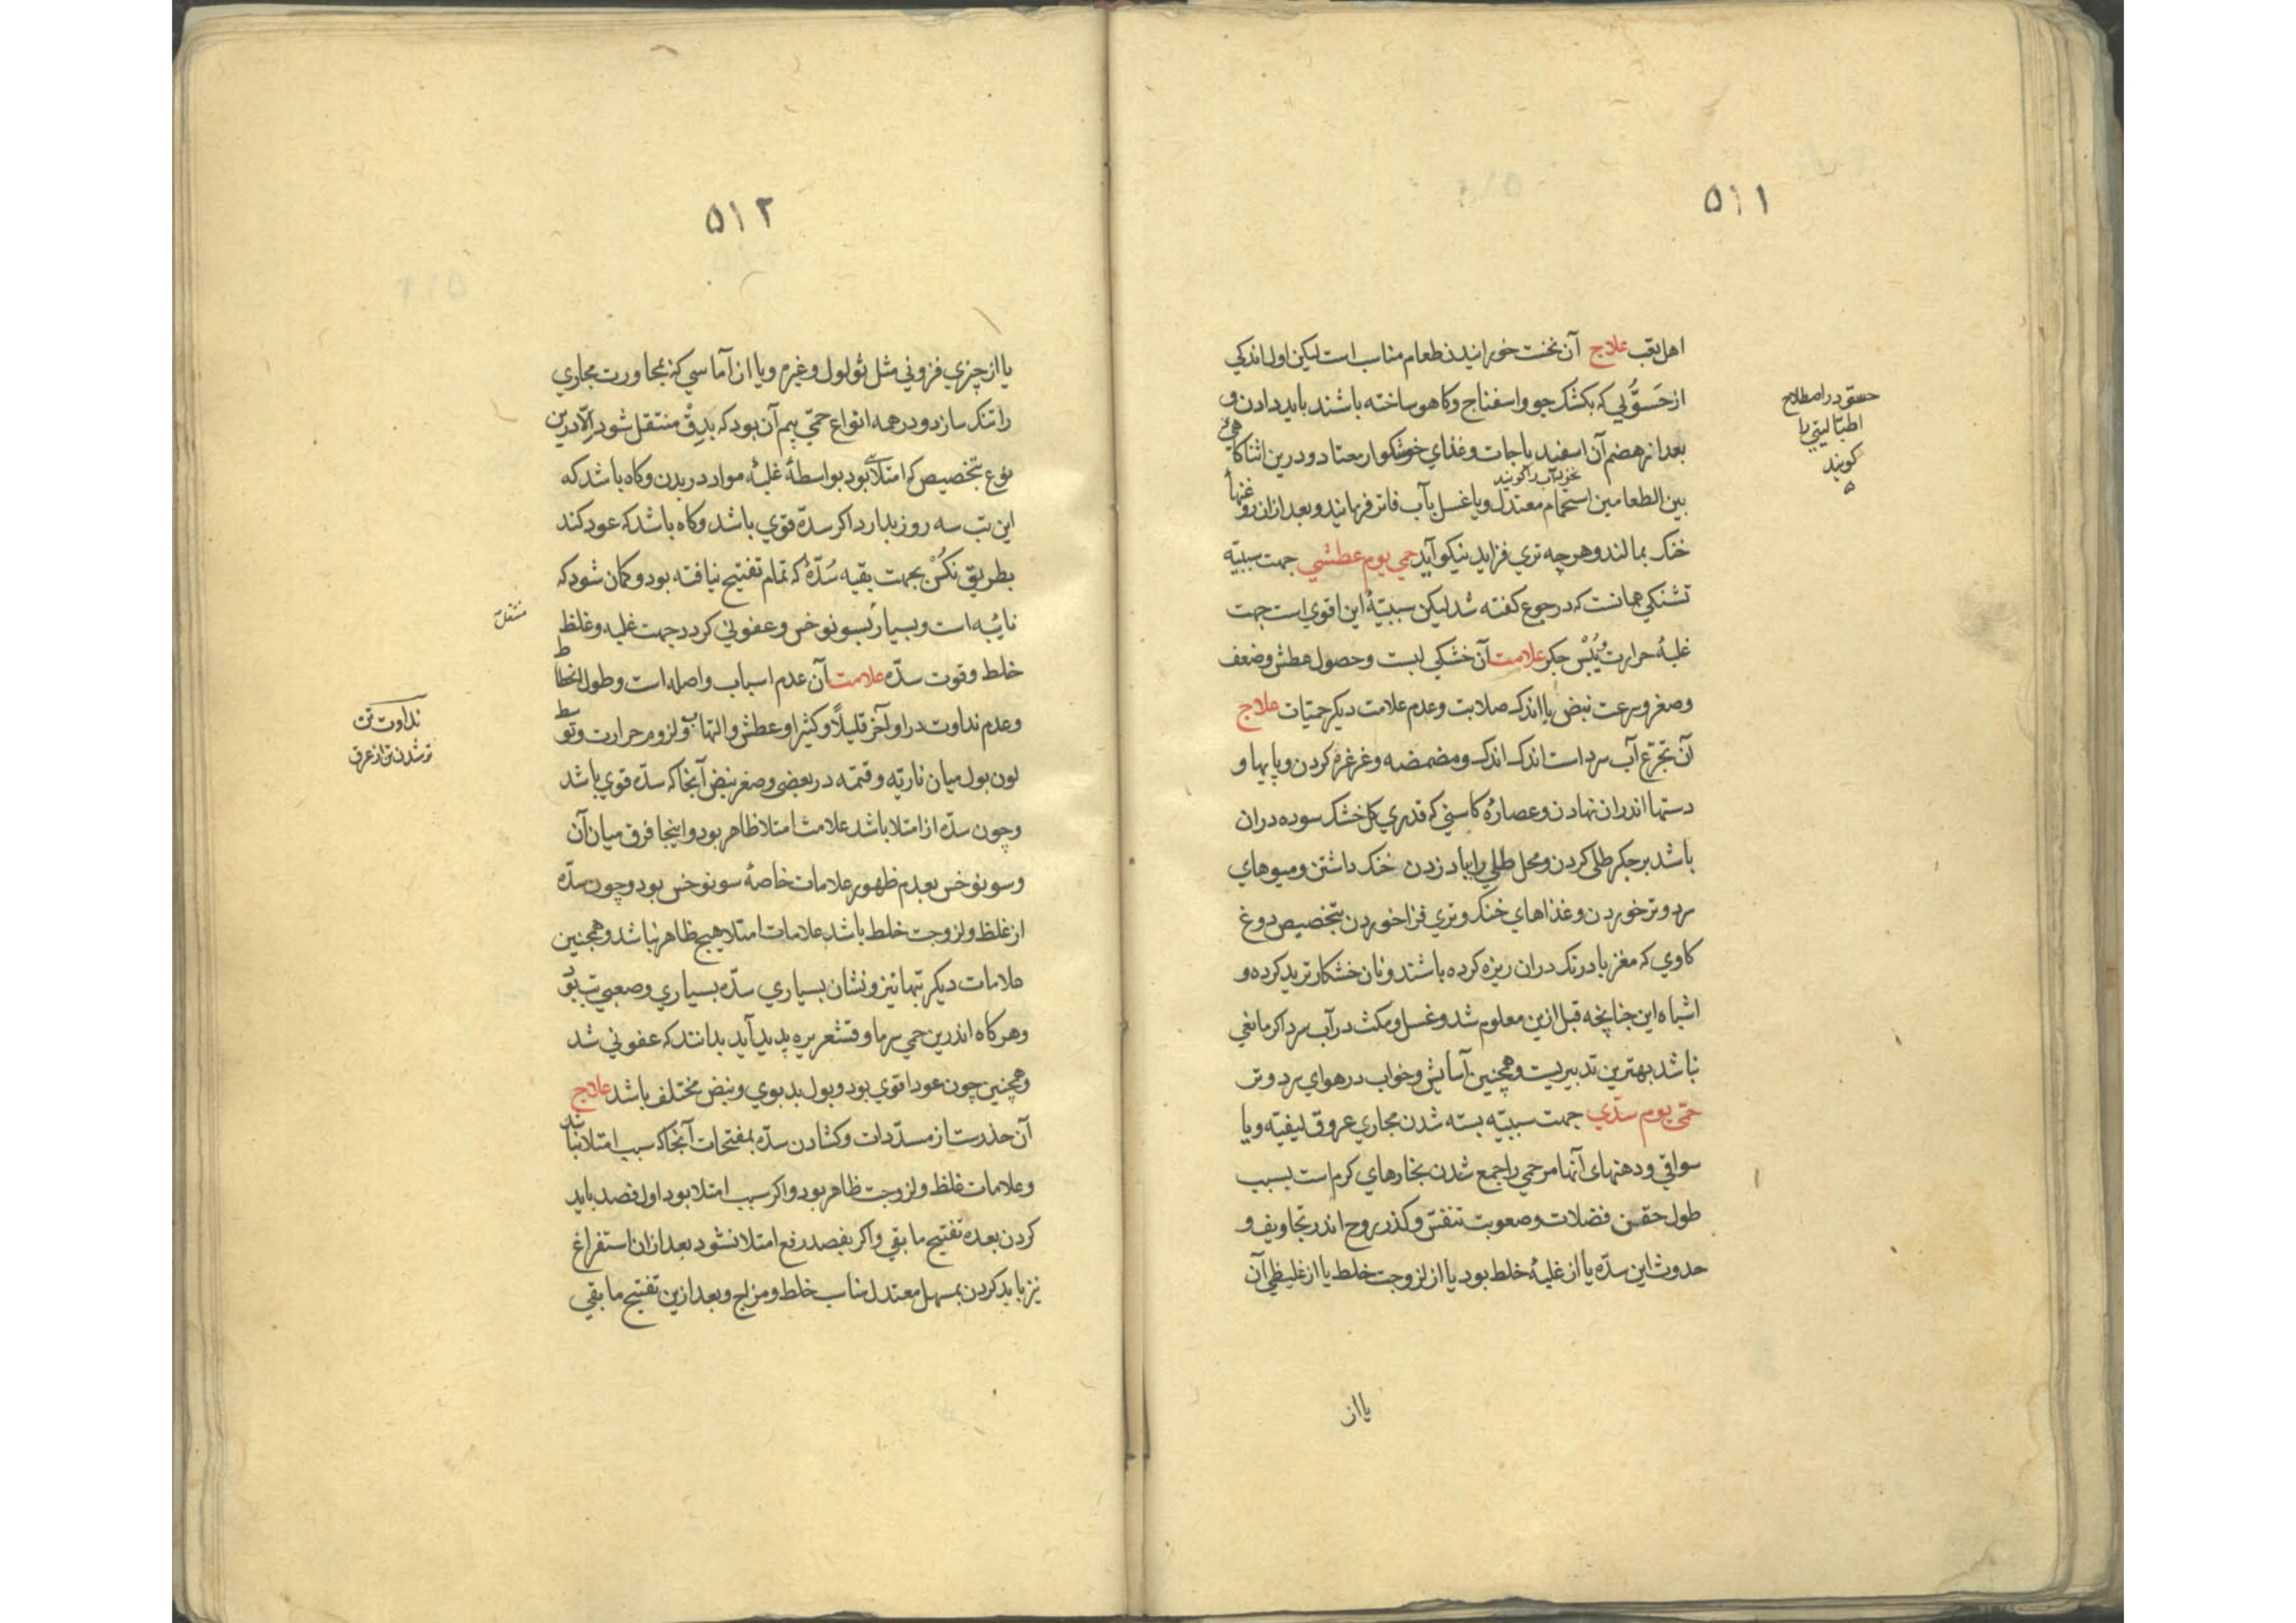 ۵۱۱
اهل تعب علاج آن نخست خورانیدن طعام مناسب است لیکن اول اندکی
از حَسَوّی که بکشک جو و اسفناج و کاهو ساخته باشند باید دادن و
بعد از هضم آن اسفیدباجات و غذای خوشکوار معتاد و درین اثنا کاهی
بین الطعامین استحمام معتدل و یا غسل بآب فاتر فرمایند و بعد ازان روغنها
خنک بمالند و هرچه تری فزاید نیکو آید حمی یوم عطشی جهت سببیّه
تشنکی همانست که در جوع کفته شد لیکن سببیّهٔ این اقوی است جهت
غلبهٔ حرارت و یُبْس جکر علامت آن خشکی لبست و حصول عطش و ضعف
و صغر و سرعت نبض با اندک صلابت و عدم علامت دیکر حمیّات علاج
آن تجرّع آب سرد است اندک اندک و مضمضه و غرغره کردن و پایها و
دستها اندران نهادن و عصارهٔ کاسنی که قدری کل خشک سوده دران
باشد بر جکر طلی کردن و محل طلی را بباد زدن خنک داشتن و میوهای
سرد و تر خوردن و غذاهای خنک و تری فزا خوردن بتخصیص دوغ
کاوی که مغز بادرنک دران ریزه کرده باشند و نان خشکار ترید کرده و
اشباه این چنانچه قبل ازین معلوم شد و غسل و مکث در آب سرد اکر مانعی
نباشد بهترین تدبیریست و همچنین آسایش و خواب در هوای سرد و تر
حمّی یوم سدّی جهت سببیّه بسته شدن مجاری عروق لیفیّه و یا
سواقی و دهنهای آنها مر حمی را جمع شدن بخارهای کرم است بسبب
طول حقن فضلات و صعوبت تنفس و کذر روح اندر تجاویف و
حدوث این سدّه یا از غلبهٔ خلط بود یا از لزوجت خلط یا از غلیظی آن
یا از
حسو در اصطلاح
اطبّا لیتی را
کویند
۵۱۲
یا از چیزی فزونی مثل ثؤلول و غیرم و یا از آماسی که نمجاورت مجاری
را تنک سازد و در همه انواع حمّی بیم آن بود که بدِقّ منتقل شود الّا درین
نوع بتخصیص که امتلائی بود بواسطهٔ غلبهٔ مواد در بدن و کاه باشد که
این تب سه روز بدارد اکر سدّه قوی باشد و کاه باشد که عود کند
بطریق نکُسْ بجهت بقیه سُدّهٔ که تمام تفتیح نیافته بود و کمان شود که
نایبه است و بسیار بسونوخس و عفونی کردد جهت غلبه و غلظ
خلط و قوت سدّه علامت آن عدم اسباب واصله است و طول انحطاط
و عدم نداوت در اواخر قلیلاً و کثیرا و عطش و التهاب و لزوم حرارت و توسط
لون بول میان ناریّه و قتمه در بعضی و صغر نبض آنجا که سدّه قوی باشد
و چون سدّه از امتلا باشد علامت امتلا ظاهر بود و اینجا فرق میان آن
و سونوخس بعدم ظهور علامات خاصهٔ سونوخس بود و چون سدّه
از غلظ و لزوجت خلط باشد علامات امتلا هیچ ظاهر نباشد و همچنین
علامات دیکر تبها نیز و نشان بسیاری سدّه بسیاری و صعبی تب بود
و هرکاه اندرین حمی سرما و قشعریره پدید آید بدانند که عفونی شد
و همچنین چون عود اقوی بود و بول بدبوی و نبض مختلف باشد علاج
آن حذرست از مسدّدات و کشادن سدّه بمفتحات آنجا که سبب امتلا نباشد
و علامات غلظ و لزوجت ظاهر بود و اکر سبب امتلا بود اول فصد باید
کردن بعده تفتیح ما بقی و اکر بفصد رفع امتلا نشود بعد ازان استفراغ
نیز باید کردن بمسهل معتدل مناسب خلط و مزاج و بعد ازین تفتیح ما بقی
نداوت تن
تر شدن تن از عرق